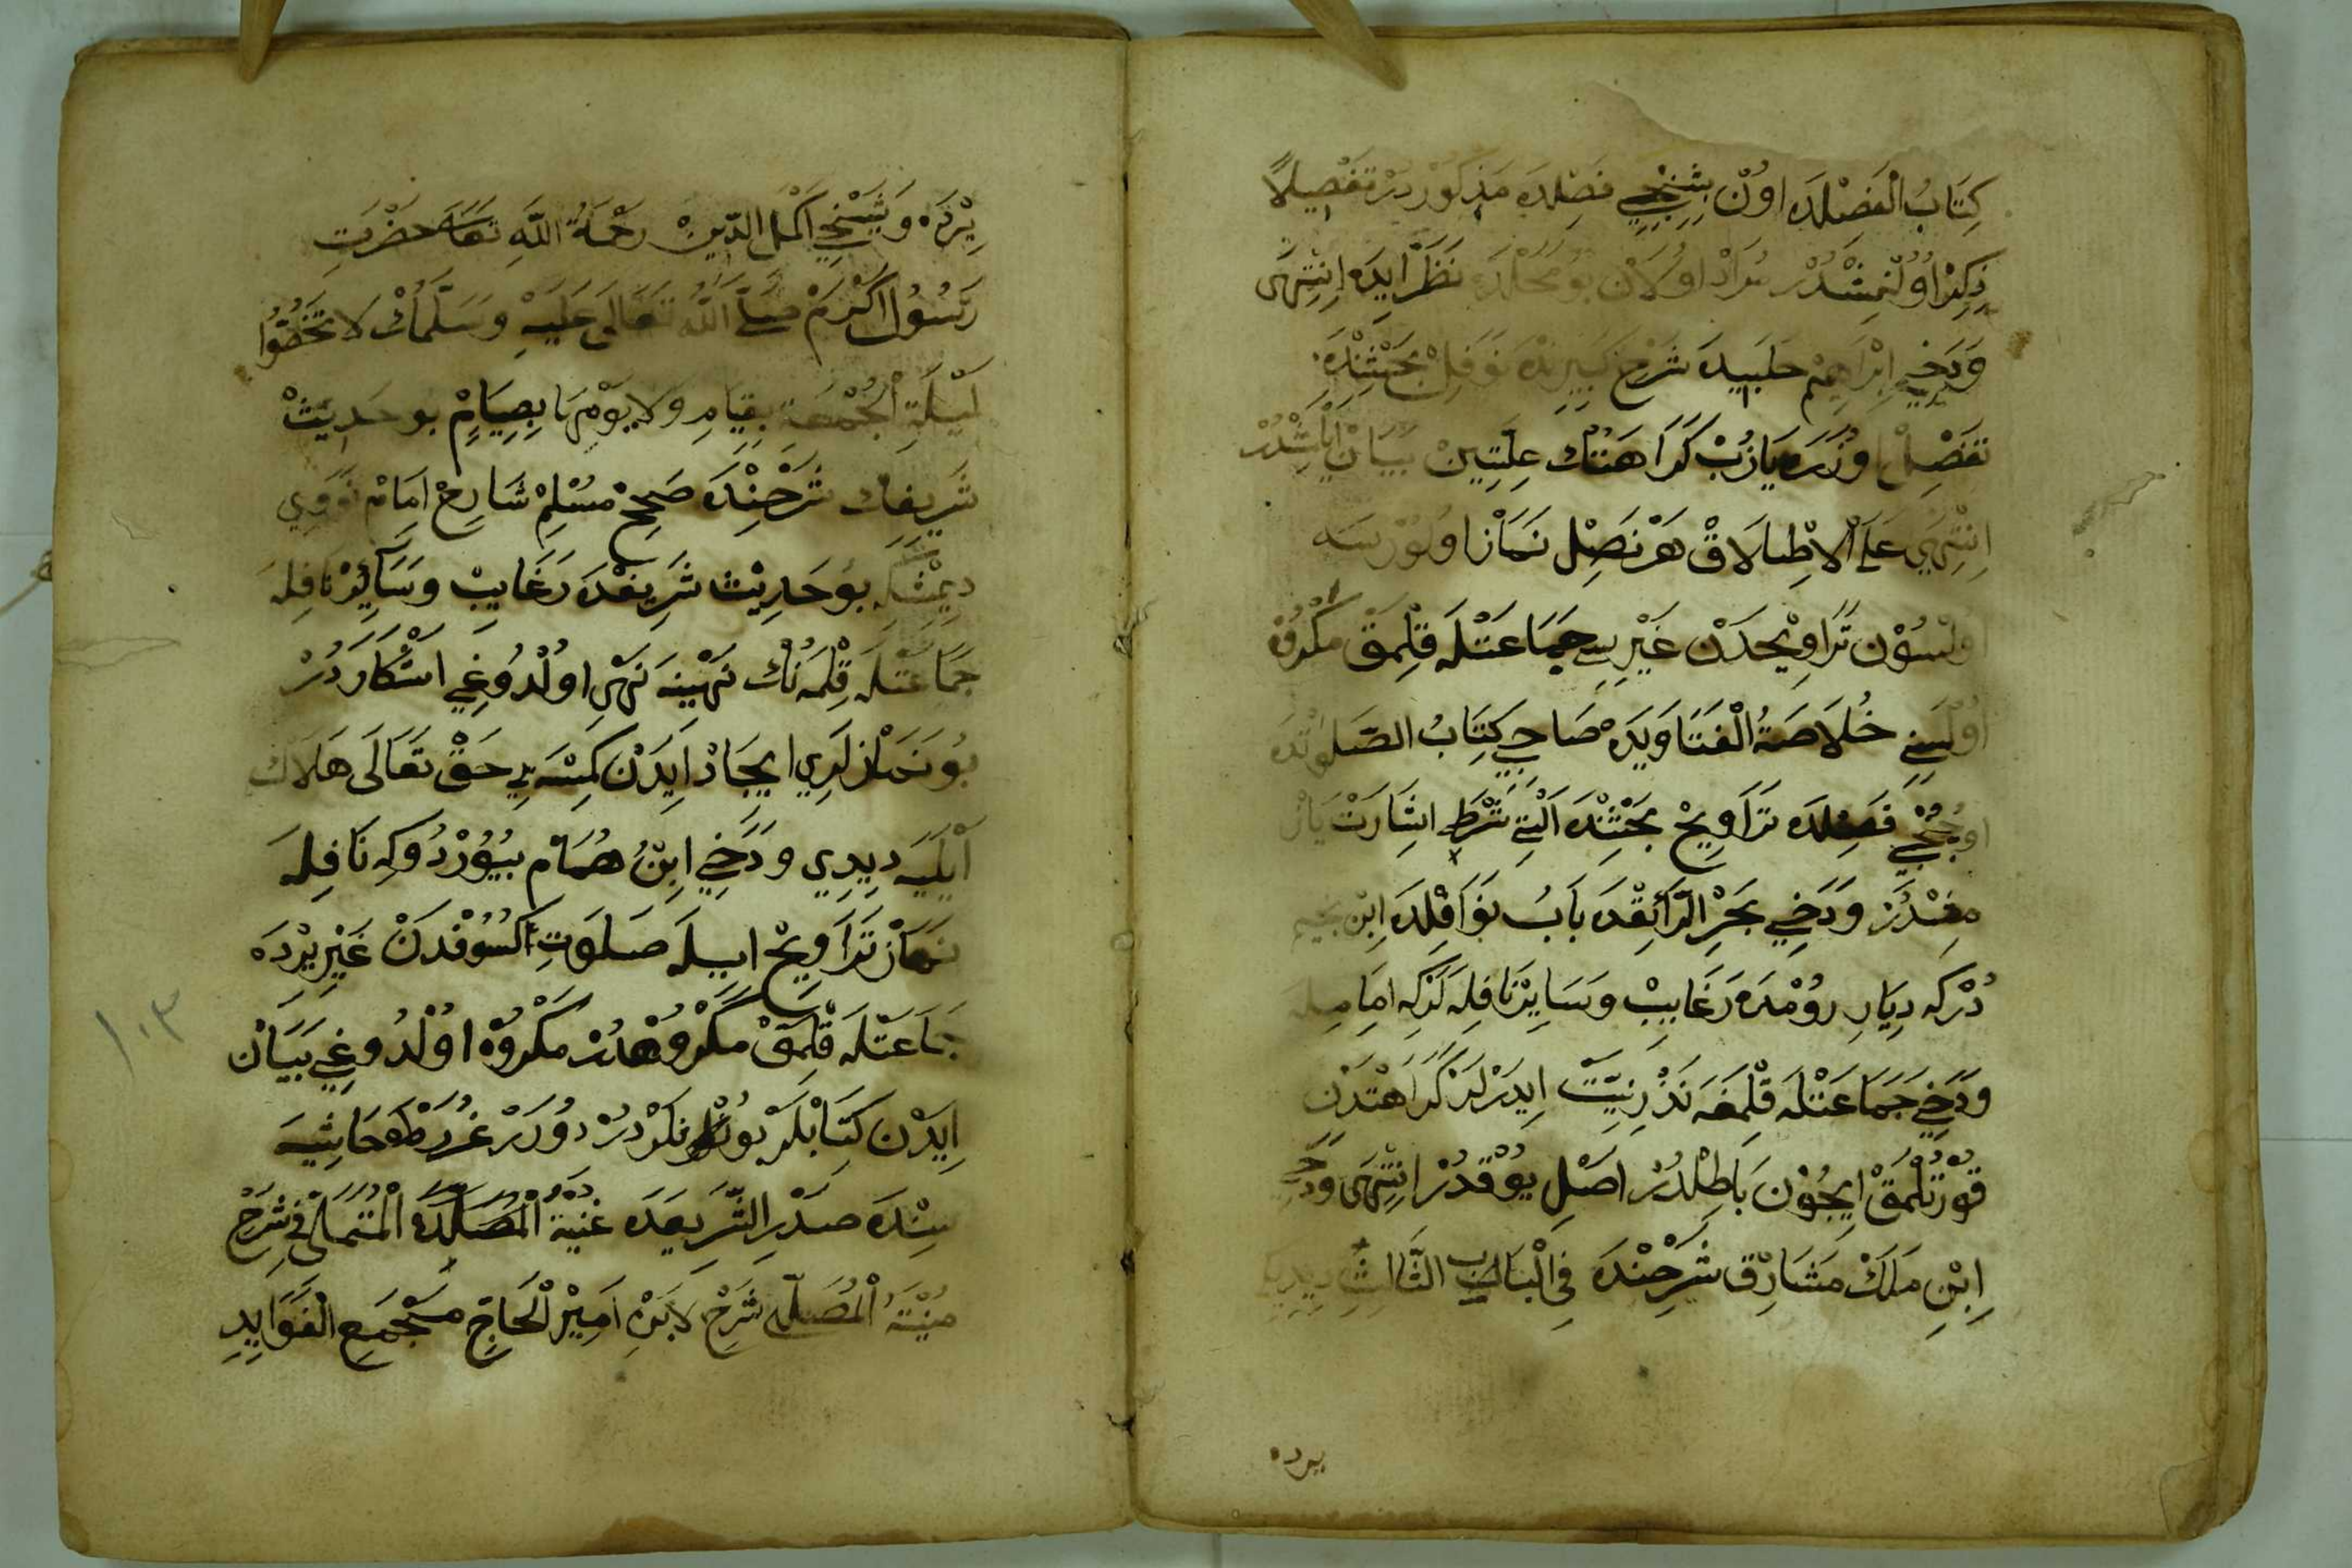 كِتَابُ الْفَصْلَدَه اوُنْ بِشِنْجِي فَصِلْدَه مَذْكُورْدُرْ تَفْصِيلاً
ذِكِرْ اوُلُنْمِشْدُرْ مُرَادْ اوُلاَنْ بُو مَحَلْدَه نَظَرْ اَيدَه اِنْتِهَى
وَدَخِي اِبْرَاهِيمْ حَلَبِيدَه شَرْحِ كَبِيرِنْدَه نَوَفِلْ بَحْثِنْدَه
تَفْصِلْ اوُزَرَه يَازُبْ كَرَاهَتُنْك عِلَّتِينْ بَيَانْ اَيْلَمِشْدُرْ
اِنْتِهَى عَلَى الْاِطْلَاقْ هَرْ نَصِلْ نَمَازْ اوُلُورْسَه
اوُلْسُوْن تَرَاوِيْحدَنْ غَيْرِيسِ جَمَاعَتْلَه قِلِمَقْ مَكْرُوْه
اوُلْسِنِ خُلَاصَةُ الْفَتَاوَيدَه صَاحِبِ كِتَابُ الصَّلوَاتْدَه
اوُجُنْجِي فَصِلْدَه تَرَاوِيحْ بَحْثِنْدَه اَلْتِي شَرْطَه اِشَارَتْ يَازْ
مِشْدُرْ وَدَخِي بَحْرِ الرَّائِقْدَه بَابُ نَوَافِلْدَه اِبْنِ نجيم
دُرْكِه دِيَارِ رُوْمْدَه رَغَايِبْ وَسَايِرْ نَافِلَه لَرْكِه اِمَامِيلَه
وَدَخِي جَمَاعَتْلَه قِلْمَغَه نَذْرِ نِيَّتْ اِيدَرْلَرْ كَرَاهَتْدَنْ
قُورْتُلْمَقْ اِيجُوْن بَاطِلْدُرْ اَصْلِ يُوْقْدُرْ اِنْتِهَى وَدَخِي
اِبْنِ مَلَكْ مَشَارِقْ شَرْحِنْدَه فِي الْبَابِ الثَّالِثِ دِيدِيكِ
يرده
يِرْدَه وَشَيْخِ اَكْمَلُ الدِّينْ رَحْمَةُ اللّٰهِ تَعَالَى حَضْرَتِ
رَسُوُلِ اَكْرَمْ صَلَّى اللّٰهُ تَعَالَى عَلَيْهِ وَسَلَّمْكْ لَا تَخُصُّوا
لَيْلَةَ الْجُمْعَةِ بِقِيَامٍ وَلَا يَوْمَهَا بِصِيَامٍ بو حَدِيثْ
شَرِيفِكْ شَرْحِنْدَه صَحِيحْ مُسْلِمْ شَارِحْ اِمَامْ نَوَوِي
دِيمْشكِه بُو حَدِيْثْ شَرِيفْدَه رَغَايِبْ وَسَائِرْ نَافِلَه
جَمَاعَتْلَه قِلْمَه نُكْ نَهْيِنَه نَهْيِ اوُلْدُوغِي اَشْكَارَه دُرْ
بُو نَمَازْلَرِي اِيجَادْ اَيدَنْ كِمْسَه يِي حَقْ تَعَالَى هَلَاكْ
اَيْلَيَه دِيدِي وَدَخِي اِبْنُ هُمَامْ بُيُوْرْدُوكِه نَافِلَه
نَمَازْ تَرَاوِيحْ اِيلَه صَلَوَتِ اكْسُوْفْدَنْ غَيْرِ يْرْدَه
جَمَاعَتْلَه قِلْمَقْ مَكْرُوهْدُرْ مَكْرُوْه اوُلْدُوغِي بَيَانْ
اِيدَنْ كِتَابْلَرْ بُونْلَرْدُرْ دُورَرْ غُرَرْطَه حَاشِيَه
سِنْدَه صَدْرِ الشَّرِيعَدَه غُنْيَةُ الْمُصَلِّدَه الْمُتَمَلِّي فِي شَرْحِ
مُنْيَةُ الْمُصَلِّي شَرْحِ لَابْنِ اَمِيْر الْحَاجِّ مَسْجْمَعِ الْفَوَايِدِ
١٠٣